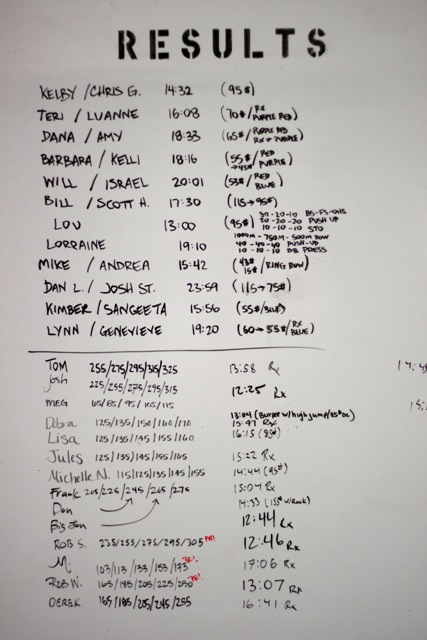 RESULTS
KELBY / CHRIS G. 14:32 (95#)
TERI / LUANNE 16:08 (70#/RX PURPLE RED)
DANA / AMY 18:33 (65#/PURPLE RED RX + PURPLE)
BARBARA / KELLI 18:16 (55#/RED PURPLE)
WILL / ISRAEL 20:01 (53#/RED BLUE)
BILL / SCOTT H. 17:30 (115→95#)
LOU 13:00 (95#) 30-20-10 BS-FS-OHS
20-20-20 PUSH UP
10-10-10 STO
LORRAINE 19:10 1000M-750M-500M ROW
40-40-40 PUSH-UP
10-10-10 DB PRESS
MIKE / ANDREA 15:42 (43# 15#/RING ROW)
DAN L. / JOSH ST. 23:59 (115→75#)
KIMBER / SANGEETA 15:56 (55#/BLUE)
LYNN / GENEVIEVE 19:20 (60→55#/RX BLUE)
TOM 255/275/295/315/325 13:58 Rx
Josh 225/255/275/295/315 12:25 Rx
MEG 65/85/95/105/115 13:04 (Burpee w/high jump/85#DL)
Debra 125/135/150/160/170 15:47 Rx
Lisa 125/135/145/155/160 16:15 (85#)
Jules 125/135/145/155/165 15:22 Rx
Michelle N. 115/125/135/145/155 14:44 (95#)
Frank 205/225/245/265/275 15:04 Rx
Dan 14:33
Big Jon 12:44 Rx
ROB S. 235/255/275/295/305 PR! 12:46 Rx
103/113/133/153/173 PR! 17:06 Rx
ROB W. 165/185/205/225/250 PR! 13:07 Rx
DEREK 165/185/205/245/255 16:41 Rx